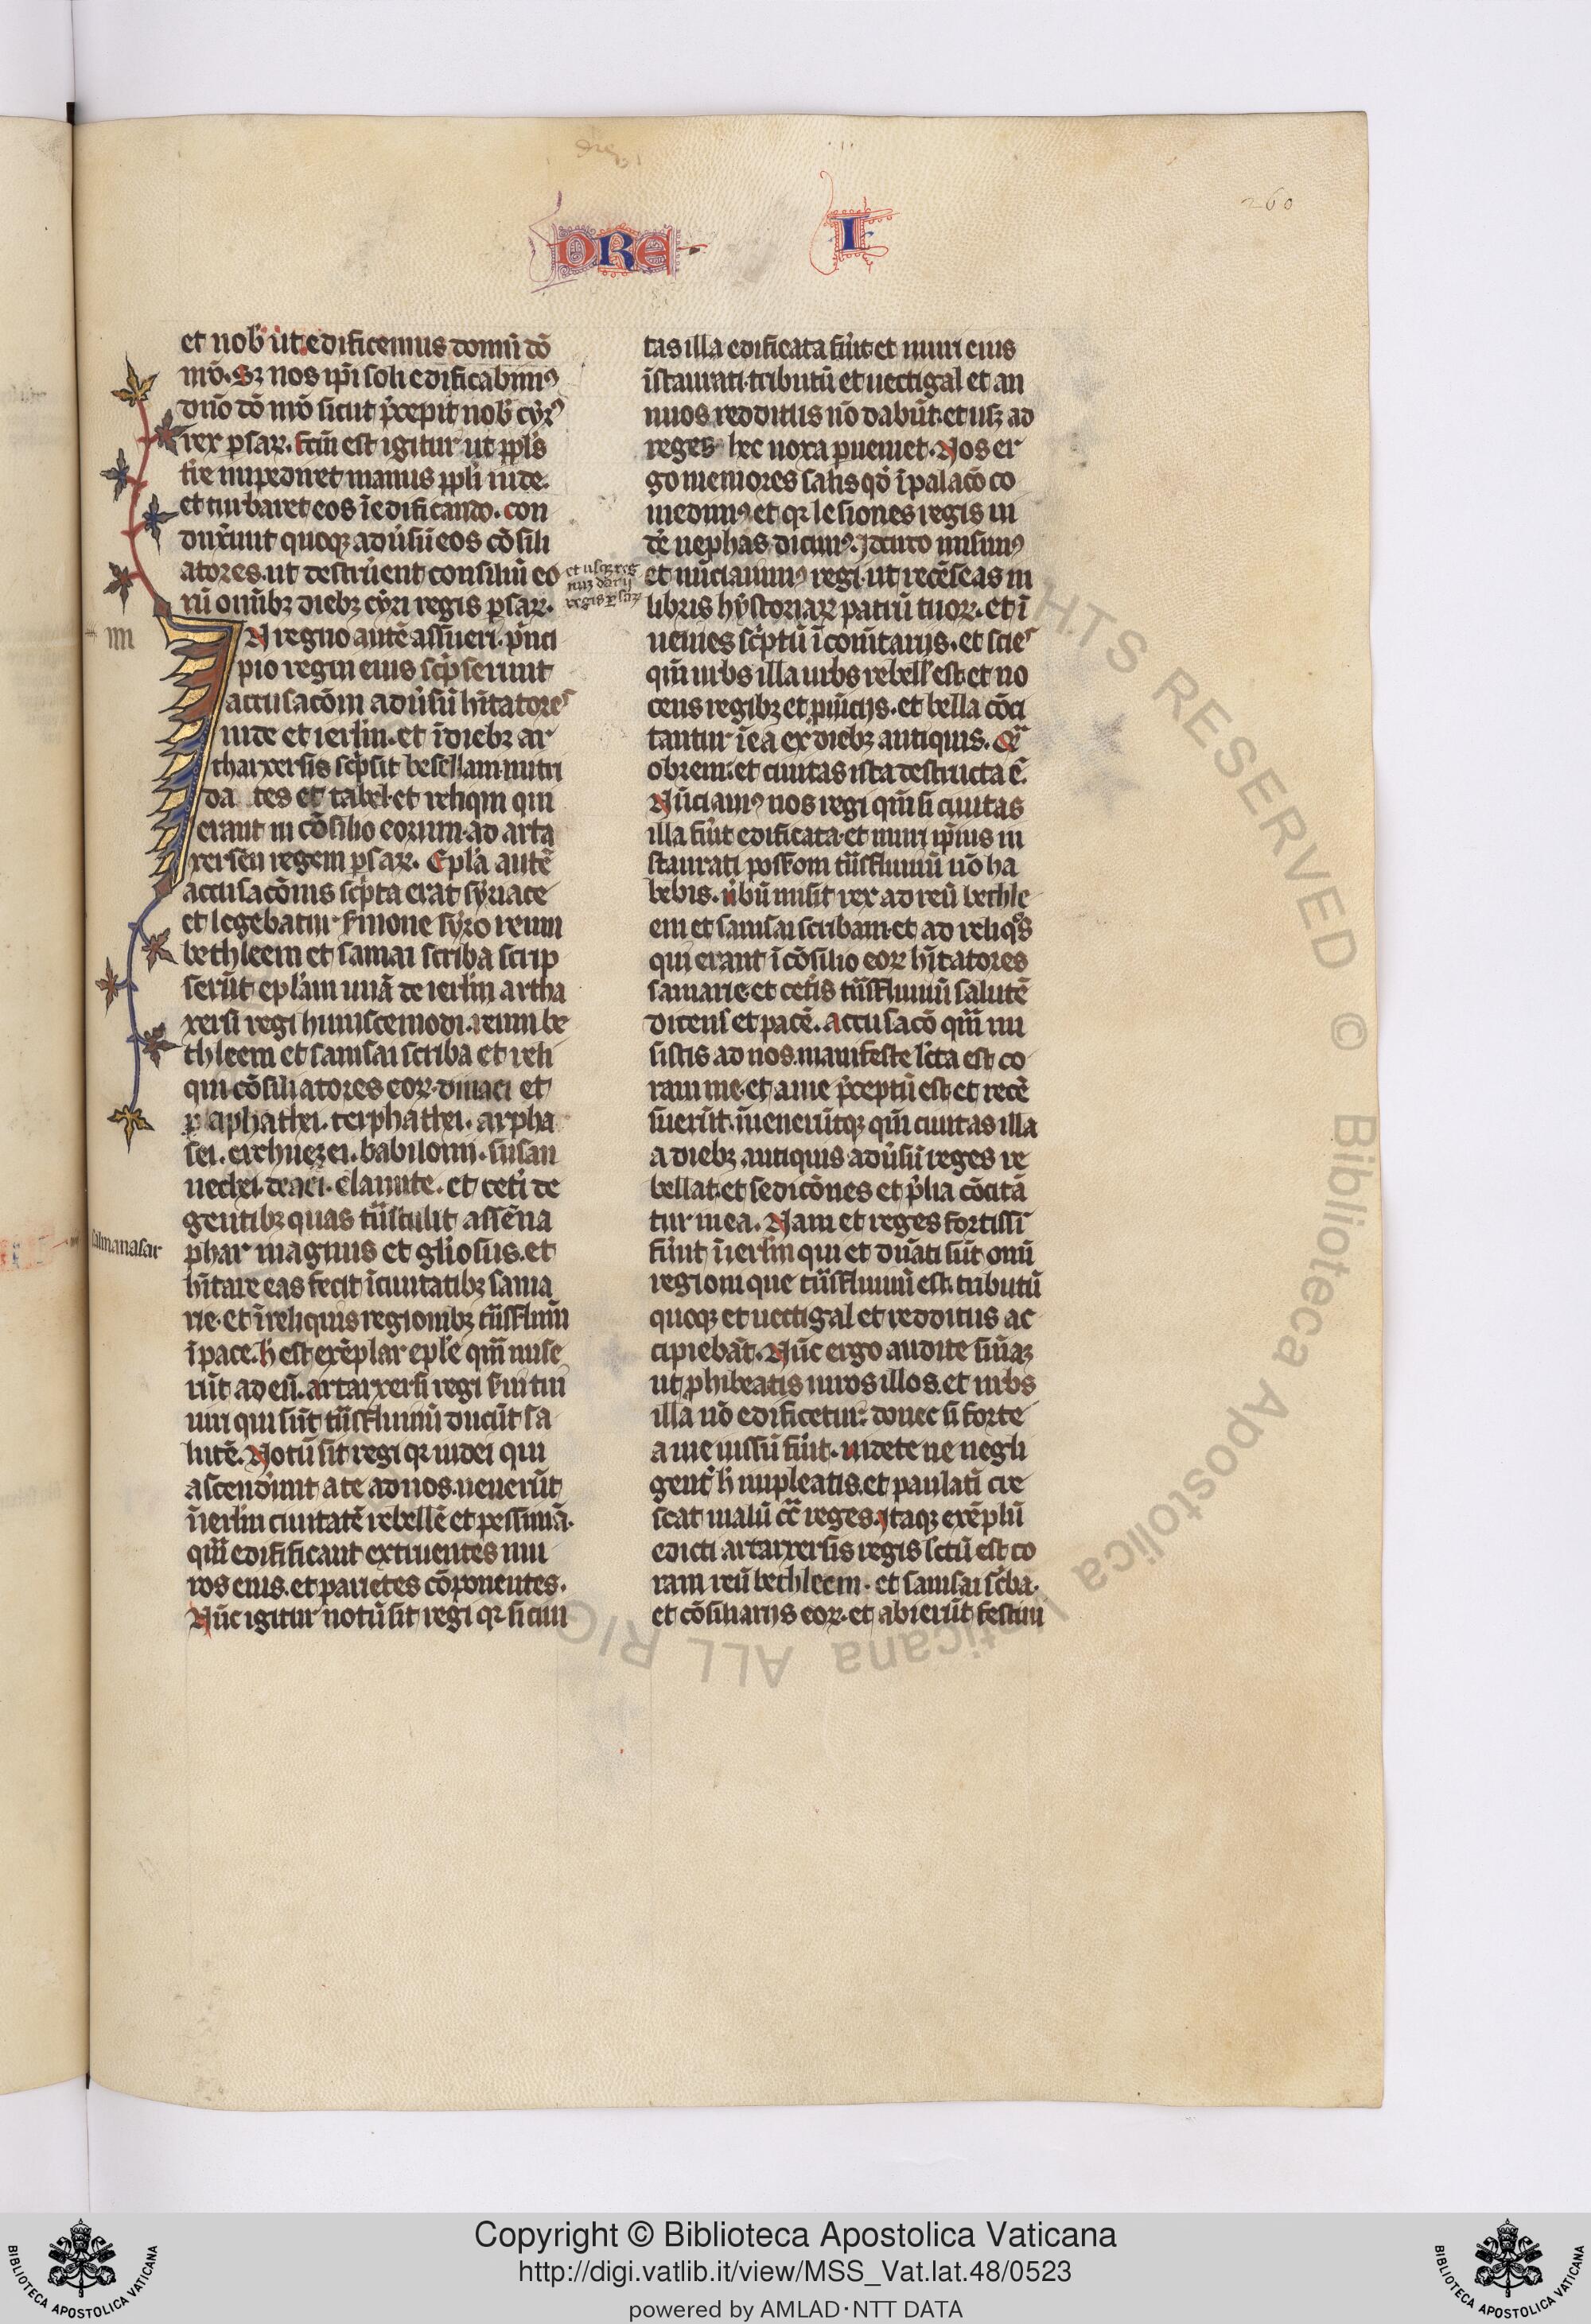 260
DRE I
et nob̾ ut edificemus domū dō
mō. Sꝫ nos ip̄i soli edificabimꝰ
dn̄o dō nr̄o sicut p̄cepit nob̾ cyrꝰ
rex ꝑsaꝝ. fc̄m est igitur ut ppl̄s
tr̄e impediret manus ppl̄i iude.
et turbaret eos ī edificando. con
duxer̄unt quoqꝫ adūsū eos cōsili
atores. ut destruerent consiliū eo
rū om̄ibꝫ diebꝫ cyri regis ꝑsaꝝ.
et usqꝫ reg
nūꝫ darij
regis ꝑsaꝝ
IIII
IN regno autē assueri. p̄nci
pio regni eius scp̄serunt
accusacōm adūsū hītatores
iude et ierl̄m. et ī diebꝫ ar
tharxersis scp̄sit besellam mitri
da tes et tabel et reliqui qui
erant in cōsilio eorum. ad arta
xersen regem ꝑsaꝝ. Epl̄a autē
accusacōnis scp̄ta erat syriace
et legebatur s̄mone syro reum
bethleem et samai scriba scrip
serūt epl̄am unā de ierl̄m artha
xersi regi huiuscemodi. reum be
thleem et samsai scriba et reli
qui cōsiliatores eoꝝ. dinaei et
pha aphathei. terphathei. arpha
sei. erchuezei. babilonii. susan
nechei. deaei. elamite. et cet̄i de
gentibꝫ quas tn̄stulit assēna
salmanasar
phar magnus et glīosus. et
hītare eas fecit ī ciuitatibꝫ sama
rie. et ī reliquis regionibꝫ tn̄sflumī
ī pace. h̄ est exēplar epl̄e qm̄ mise
rūt ad eū. artarxersi regi s̄ui tui
uiri qui sūt tn̄sfluuiū dicūt sa
lutē. Notū sit regi qꝛ iudei qui
ascendūnt a te ad nos. uenerūt
ī ierl̄m ciuitatē rebellē et pessimā.
qm̄ edifificant extruentes mu
ros eius. et parietes cōponentes.
Nūc igitur notū sit regi qꝛ si ciui
tas illa edificata fūit et muri eius
īstaurati. tributū et uectigal et an
nuos redditus nō dabūt. et usqꝫ ad
reges hec noxa ꝑueniet. Nos er
go memores salis qd̄ ī palacō co
medimꝰ et qꝛ lesiones regis ui
dē nephas dicimꝰ. Idcirco misimꝰ
et nūciauimꝰ regi. ut recēseas in
libris hystoriaꝝ patrū tuoꝝ. et ī
uenies scp̄tū ī com̄tariis. et scies
qm̄ urbs illa urbs rebell̄ est et no
cens regibꝫ et ꝓuīciis. et bella cōci
tantur ī ea ex diebꝫ antiquis. Qm̄
obrem. et ciuitas ista destructa ē.
Nūciamꝰ nos regi qm̄ si ciuitas
illa fūit edificata. et muri ip̄ius in
staurati possōm tn̄sfluuiū nō ha
bebis. ūbū misit rex ad reū bethle
em et samsai scribam. et ad reliqͦs
qui erant ī cōsilio eoꝝ hītatores
samarie. et cet̄is tn̄sfluuiū salutē
dicens et pacē. accusacō qm̄ mi
sistis ad nos. manifeste lc̄ta est co
ram me. et a me p̄ceptū est. et recē
suerūt. īuenerūtqꝫ qm̄ ciuitas illa
a diebꝫ antiquis adūsū reges re
bellat. et sedicōnes et p̄lia cōcitā
tur in ea. Nam et reges fortissi
fūnt ī ierl̄m qui et dn̄ati sūt om̄i
regioni que tn̄sfluuiū est. tributū
quoqꝫ et uectigal et redditus ac
cipiebāt. Nūc ergo audite sn̄iaꝫ
ut ꝓhibeatis uiros illos. et urbs
illa nō edificetur. donec si forte
a me iussū fūit. uidete ne negli
gent̄ h̄ impleatis. et paulatī cre
scat malū cc̄ reges. Itaqꝫ exēplū
edicti artarxersis regis lc̄tū est co
ram reū bethleem. et samsai sc̄ba.
et cōsiliariis eoꝝ. et abierūt festini
HTS RESERVED © Biblioteca Apostolica Vaticana ALL RIG
BIBLIOTECA APOSTOLICA VATICANA
Copyright © Biblioteca Apostolica Vaticana
http://digi.vatlib.it/view/MSS_Vat.lat.48/0523
powered by AMLAD·NTT DATA
BIBLIOTECA APOSTOLICA VATICANA